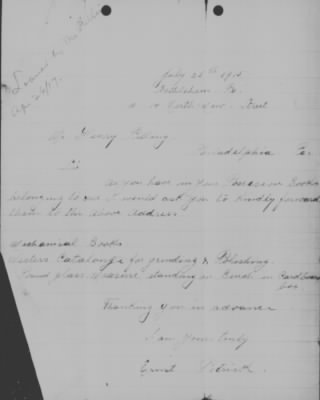 Loaned by Mr
Apr 26/17.
July 26th 191
Bethlehem Pa.
North New Street
Mr Henry
Philadelphia Pa.
As you have in your Possession Books
belonging to me I would ask you to kindly forward
them to the above address.
Mechanical Books
Catalogue for grinding & Polishing.
Round glass measure standing on Bench in Cardboard
box
Thanking you in advance
I am yours truly
Ernst